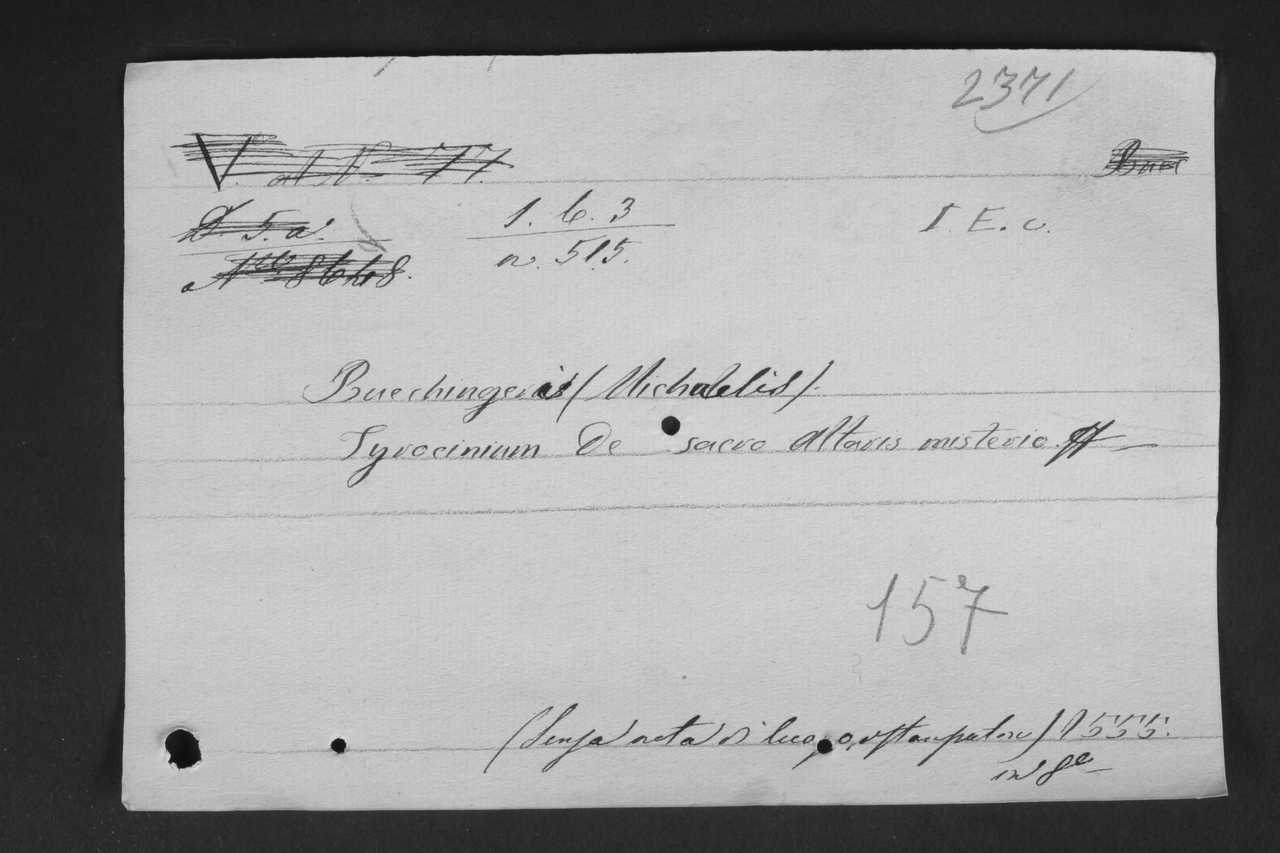 2371
V. at N. 77.
Buec
D. 5. a.
1. 6. 3
I. E. c.
Nro 8648.
n. 515.
Buechingeris (Michaelis).
Tyrocinium De sacro altaris misterio.
157
(Senza nota di luogo, o stampatore) 1555.
in 8o